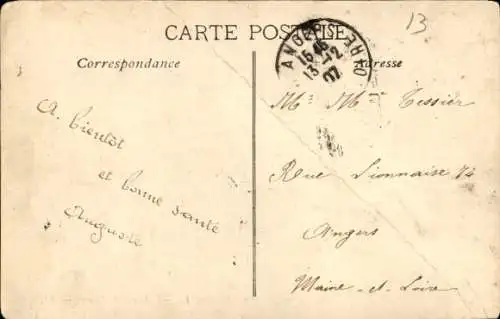 13
CARTE POSTALE
ANGERS
15 45
13 -12
07
Correspondance
Adresse
A. bientôt
et bonne santé
Auguste
Mr Mme Tessier
Rue Lionnaise 74
Angers
Maine-et-Loire